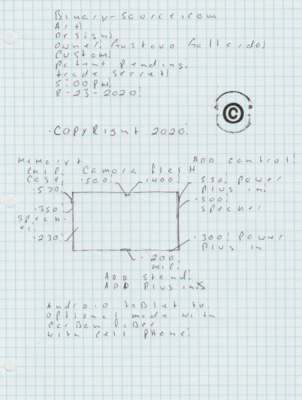 Binary-Source.com
Art
Design
Owner: Gustavo Gallardo
Custom
Patent Pending.
Trade Secret
5:00 PM
8-23-2020!
©
·COPYRight 2020!
Memory
Chip
Case.
Camera flash
.500! .400!
ADD control!
.570!
.350!
Speaker!
.230!
.550! Power
Plug in.
.500!
Speaker
.300! Power
Plug in.
.200
mic.
ADD Stand.
ADD Plug ins
Android tablet tv.
Optional made with
Carbon fiber
with cell phone!